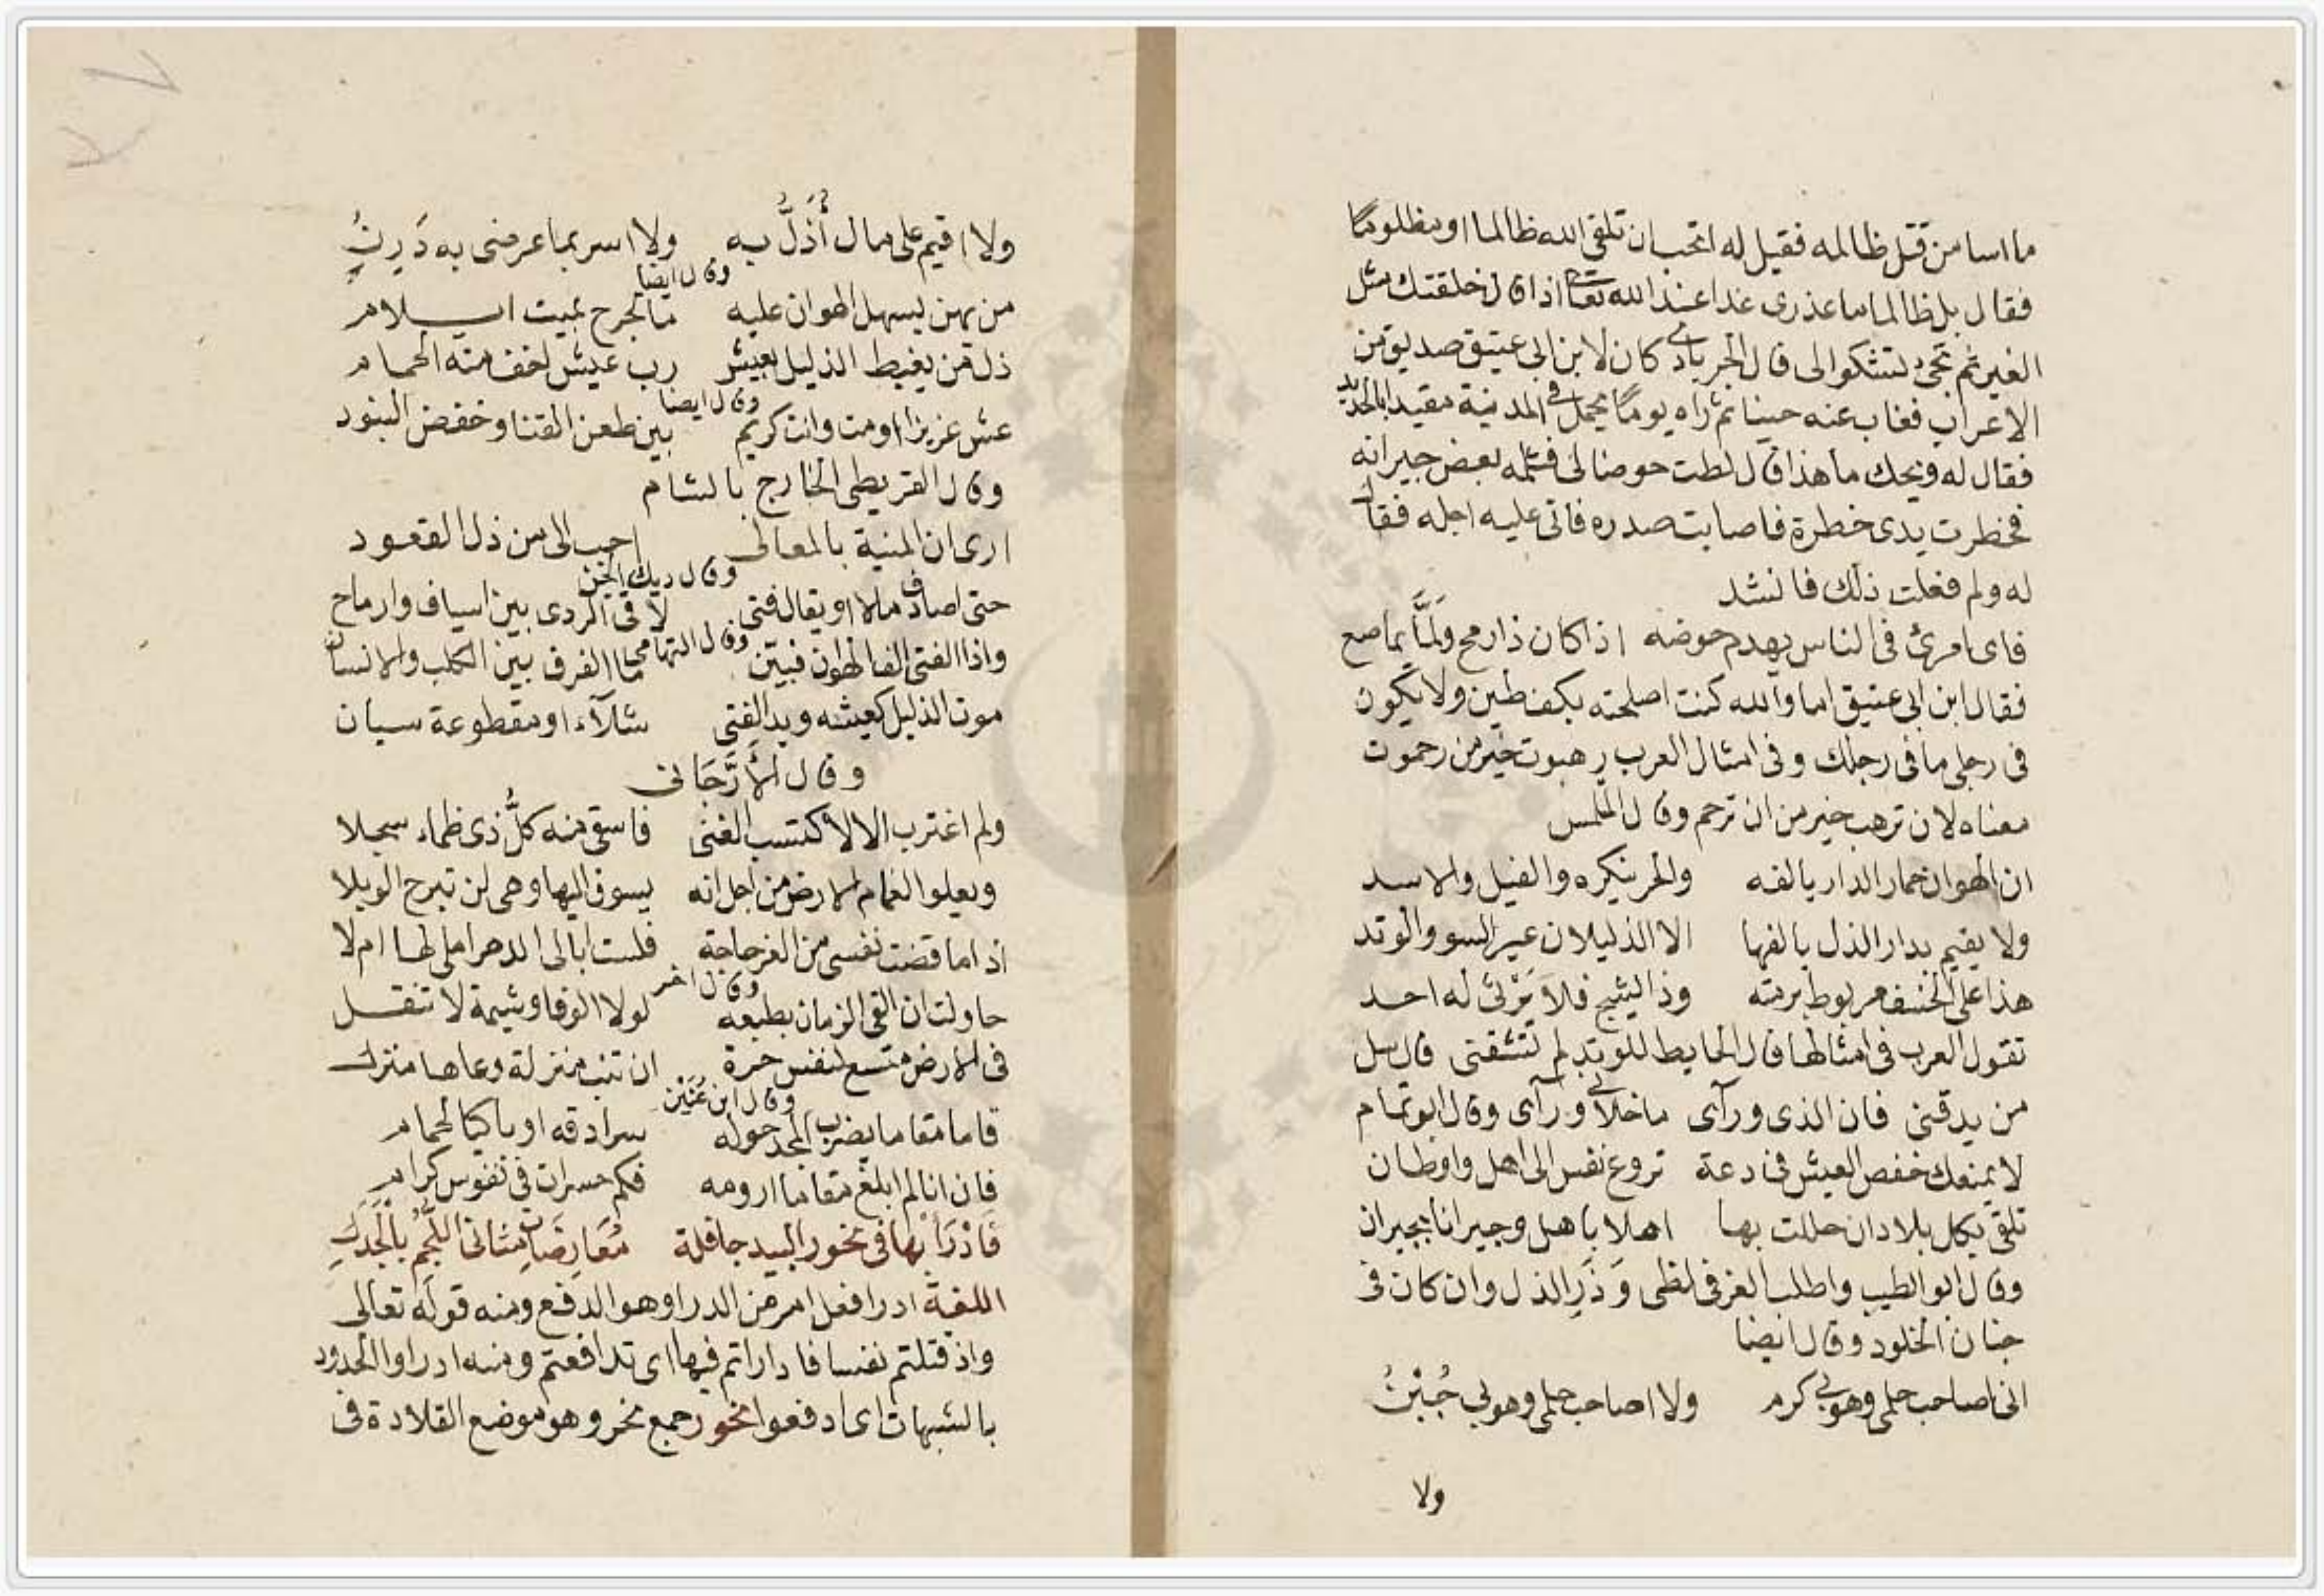 ما اسا من قتل ظالمه فقيل له اتحب ان تلقى الله ظالما او مظلوما
فقال بل ظالما ما عذرى غدا عند الله تعالى اذا قال خلقتك مثل
العير ثم تجئ تشكوا الى قال الجرباذى كان لابن ابى عتيق صديق من
الاعراب فغاب عنه حينا ثم راه يوما يحمل فى المدينة مقيدا بالحديد
فقال له ويحك ما هذا قال لطت حوضا لى فثلمه بعض جيرانه
فخطرت يدى خطرة فاصابت صدره فاتى عليه اجله فقال
له ولم فعلت ذلك فانشد
فاى امرئ فى الناس يهدم حوضه اذا كان ذا رمح ولما يماصع
فقال ابن ابى عتيق اما والله كنت اصلحته بكف طين ولا يكون
فى رجلى ما فى رجلك وفى امثال العرب رهبوت خير من رحموت
معناه لان ترهب خير من ان ترحم وقال الملمس
ان الهوان حمار الدار يالفه والحر ينكره والفيل والاسد
ولا يقيم بدار الذل يالفها الا الذليلان عير السو والوتد
هذا على الخسف مربوط برمته وذا يشج فلا يرثى له احد
تقول العرب فى امثالها قال الحايط للوتد لم تشقنى قال سل
من يدقنى فان الذى ورآى ما خلانى ورآى وقال ابو تمام
لا يمنعك خفص العيش فى دعة تروع نفس الى اهل واوطان
تلقى بكل بلاد ان حللت بها اهلا باهل وجيرانا بجيران
وقال ابو الطيب واطلب العز فى لظى وَذَرِ الذل وان كان فى
جنان الخلود وقال ايضا
انى اصاحب حلمى وهو بى كرم ولا اصاحب حلمى وهو بى جُبْنُ
ولا
ولا اقيم على مال أُذَلُّ به ولا اسر بما عرضى به دَرِنُ
وقال ايضا
من يهن يسهل الهوان عليه ما لجرح بميت ايلام
ذل من يغبط الذليل بعيش رب عيش اخف منه الحمام
وقال ايضا
عش عزيزا او مت وانت كريم بين طعن القنا وخفض البنود
وقال القريطى الخارج بالشام
ارى ان المنية بالمعالى احب الى من ذل القعود
وقال ديك الجن
حتى اصادف مالا او يقال فتى لاقى الردى بين اسياف وارماح
وقال التهامى
واذا الفتى الف الهوان فبيّن ما الفرق بين الكلب والانسان
موت الذليل كعيشه ويد الفتى شلآء او مقطوعة سيان
وقال الأرَّجَانى
ولم اغترب الا لاكتسب الغنى فاسقى منه كلُّ ذى ظماء سجلا
ويعلوا الغمام الارض من اجل انه يسوق اليها وهى لن تبرح الوبلا
اذا ما قضت نفسى من العز حاجة فلست ابالى الدهر املى لها ام لا
وقال اخر
حاولت ان القى الزمان بطبعه لولا الوفا وشيمة لا تنقل
فى الارض متسع لنفس حرة ان تنب منزلة دعاها منزل
وقال ابن عُنَيْن
فاما مقاما يضرب المجد حوله سرادقه او باكيا لحمام
فان انا لم ابلغ مقاما ارومه فكم حسرات فى نفوس كرام
فَادْرَأ بها فى نحور البيد جافلة مُعَارِضَاتِ مثانى اللُّجُمِ بالجُدَلِ
اللغة ادرا فعل امر من الدرا وهو الدفع ومنه قوله تعالى
واذ قتلتم نفسا فاداراتم فيها اى تدافعتم ومنه ادراوا الحدود
بالشبهات اى ادفعوا نحور جمع نحر وهو موضع القلادة فى